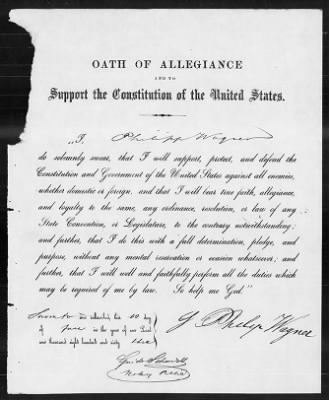 OATH OF ALLEGIANCE
AND TO
Support the Constitution of the United States.
"I, Philipp Wagner
do solemnly swear, that I will support, protect, and defend the
Constitution and Government of the United States against all enemies,
whether domestic or foreign, and that I will bear true faith, allegiance,
and loyalty to the same, any ordinance, resolution, or law of any
State Convention, or Legislature, to the contrary notwithstanding;
and further, that I do this with a full determination, pledge, and
purpose, without any mental reservation or evasion whatsoever; and
further, that I will well and faithfully perform all the duties which
may be required of me by law. So help me God."
Sworn to and subscribed this 20 day
of June in the year of our Lord
one thousand eight hundred and sixty
Philip Wagner
Notary Public